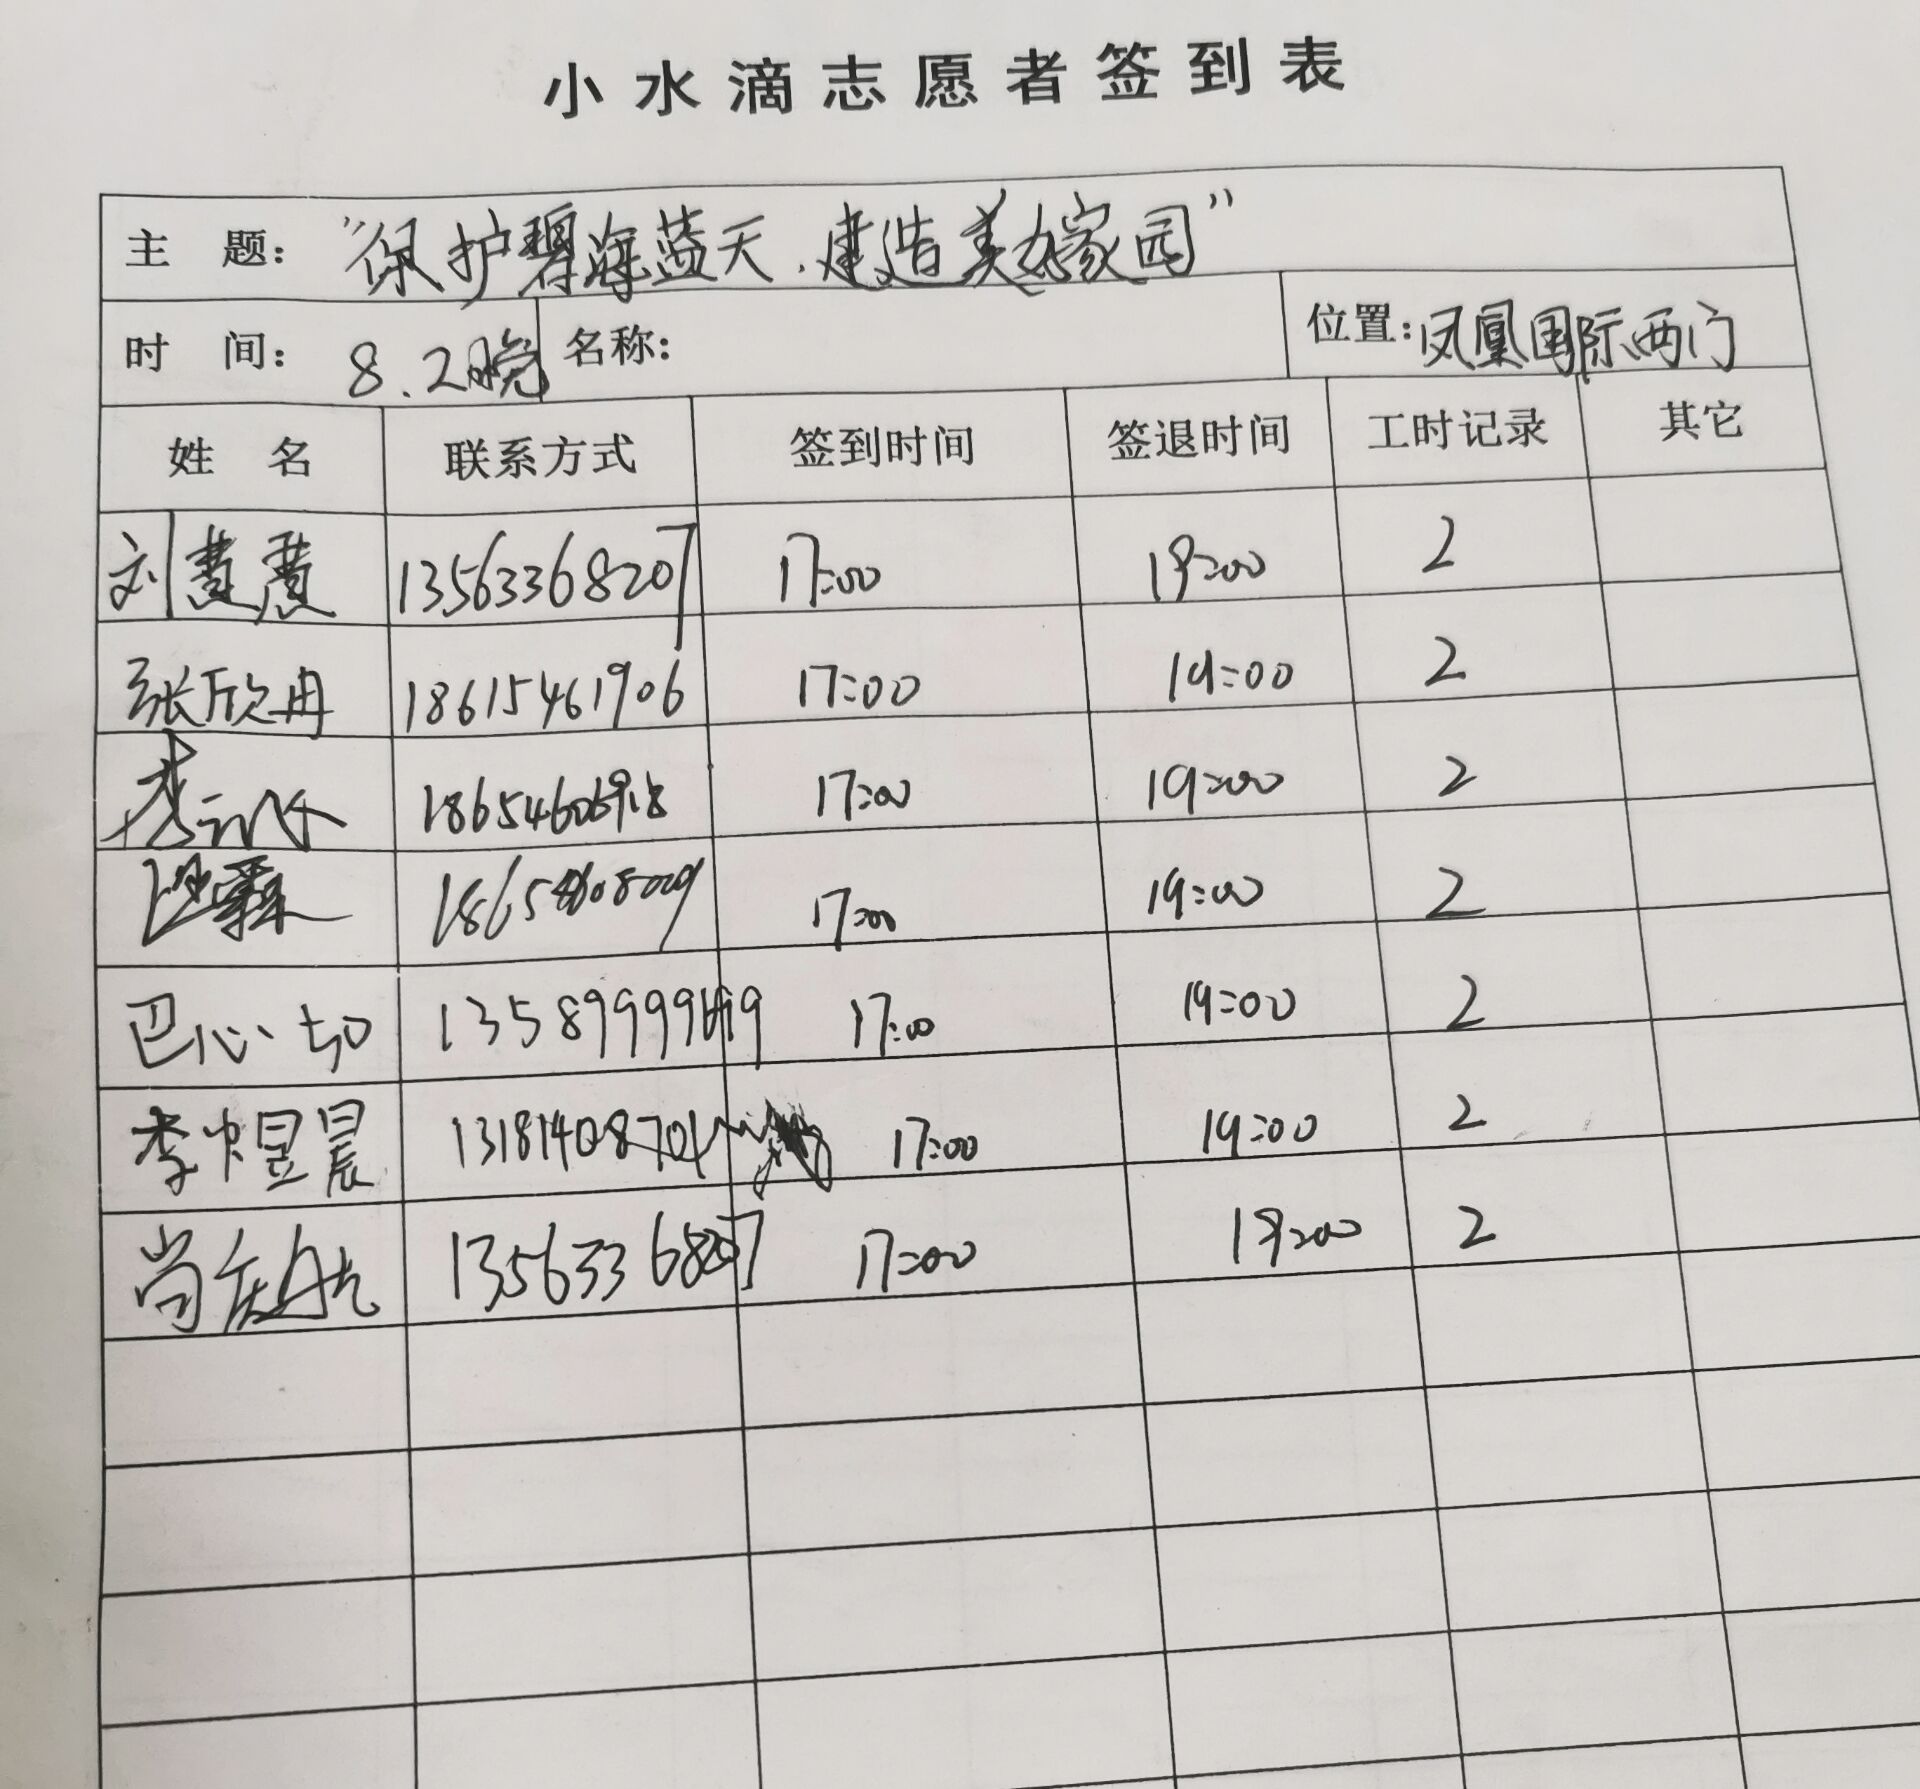 小水滴志愿者签到表
主 题: "保护碧海蓝天.建造美好家园"
时 间: 8.2日晚 名称: 位置: 凤凰国际西门
姓 名 联系方式 签到时间 签退时间 工时记录 其它
刘慧慧 13563368207 17:00 19:00 2
张欣冉 18615461906 17:00 19:00 2
17:00 19:00 2
17:00 19:00 2
巴心 17:00 19:00 2
李煜晨 17:00 19:00 2
尚 17:00 19:00 2